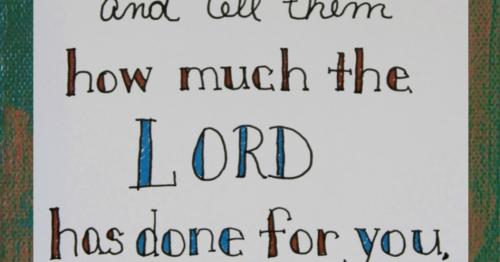 and tell them
how much the
LORD
has done for you.